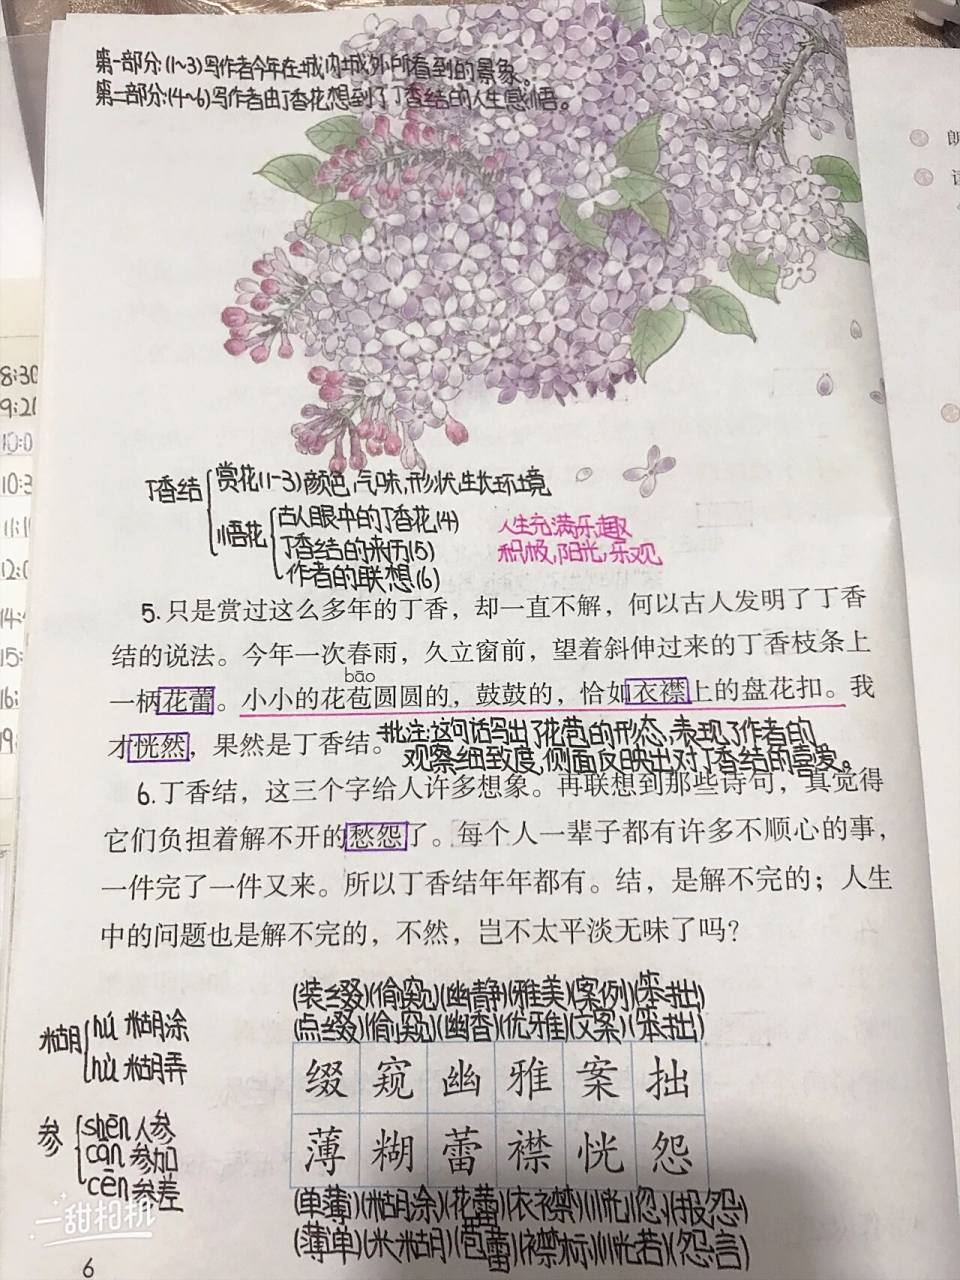 第一部分:(1~3)写作者今年在城内城外所看到的景象。
第二部分:(4~6)写作者由丁香花想到了丁香结的人生感悟。
朗
8:30
9:20
10:0
10:3
11:1
12:0
14:4
15:
16:
19:
丁香结
赏花(1-3)颜色,气味,形状,生长环境
悟花
古人眼中的丁香花(4)
丁香结的来历(5)
作者的联想(6)
人生充满乐趣
积极,阳光,乐观
5.只是赏过这么多年的丁香，却一直不解，何以古人发明了丁香
结的说法。今年一次春雨，久立窗前，望着斜伸过来的丁香枝条上
bāo
一柄花蕾。小小的花苞圆圆的，鼓鼓的，恰如衣襟上的盘花扣。我
才恍然，果然是丁香结。
批注:这句话写出了花苞的形态,表现了作者的
观察细致度,侧面反映出对丁香结的喜爱。
6.丁香结，这三个字给人许多想象。再联想到那些诗句，真觉得
它们负担着解不开的愁怨了。每个人一辈子都有许多不顺心的事，
一件完了一件又来。所以丁香结年年都有。结，是解不完的；人生
中的问题也是解不完的，不然，岂不太平淡无味了吗？
(装缀)(偷窥)(幽静)(雅美)(案例)(笨拙)
(点缀)(偷窥)(幽香)(优雅)(文案)(笨拙)
缀 窥 幽 雅 案 拙
薄 糊 蕾 襟 恍 怨
(单薄)(糊涂)(花蕾)(衣襟)(恍忽)(报怨)
(薄单)(米糊)(苞蕾)(襟标)(恍若)(怨言)
糊
hú 糊涂
hù 糊弄
参
shēn 人参
cān 参加
cēn 参差
一甜相机
6